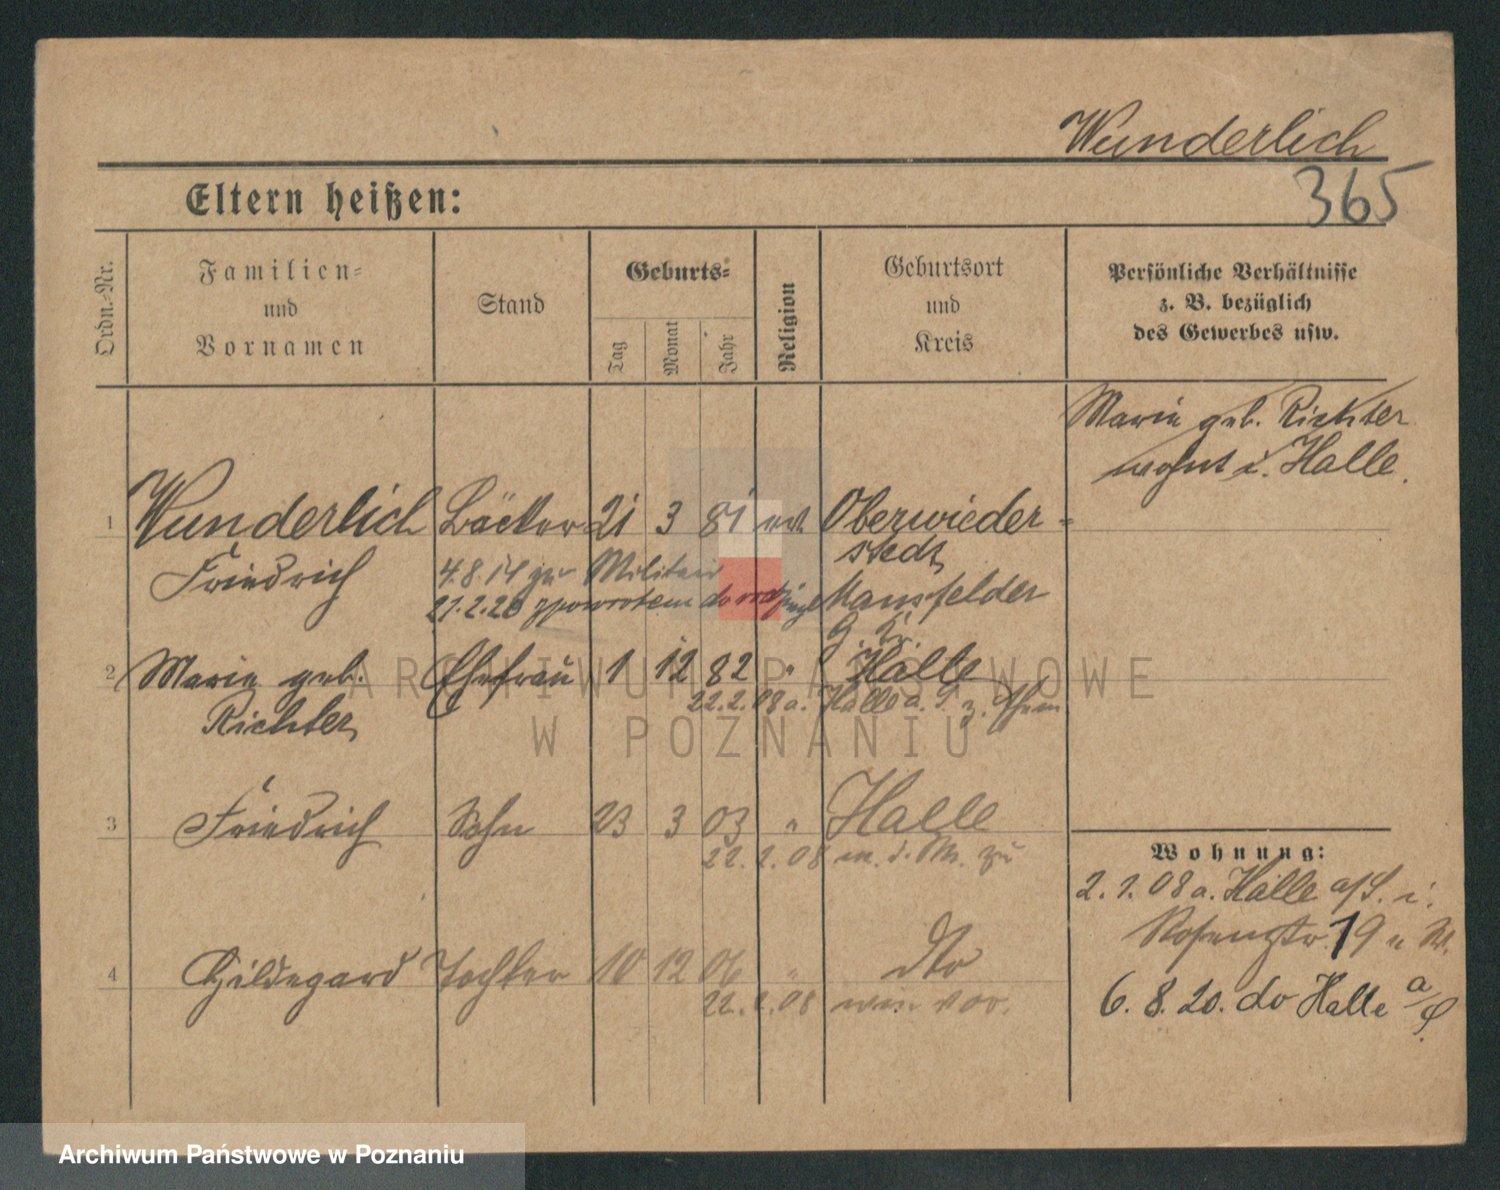 Wunderlich
365
Eltern heißen:
Ordn.-Nr.
Familien-
und
Vornamen
Stand
Geburts-
Tag
Monat
Jahr
Religion
Geburtsort
und
Kreis
Persönliche Verhältnisse
z. B. bezüglich
des Gewerbes usw.
Marie geb. Richter
wohnt i. Halle.
1 Wunderlich Bäcker 21 3 81 ev. Oberwieder-
stedt
Friedrich
4.8.14 zu Militär
21.2.20 zpowrotem do
Mansfelder
G. Kr.
2 Marie geb. Ehefrau 1 12 82 " Halle
Richter
22.2.08 a. Halle a. S. z.
3 Friedrich Sohn 23 3 03 " Halle
22.2.08 m. d. M. zu
4 Hildegard Tochter 10 12 06 " dto
22.2.08 wie vor.
Wohnung:
2.1.08 a. Halle a/S. i.
19
6.8.20. do Halle a/S.
ARCHIWUM PAŃSTWOWE
W POZNANIU
Archiwum Państwowe w Poznaniu